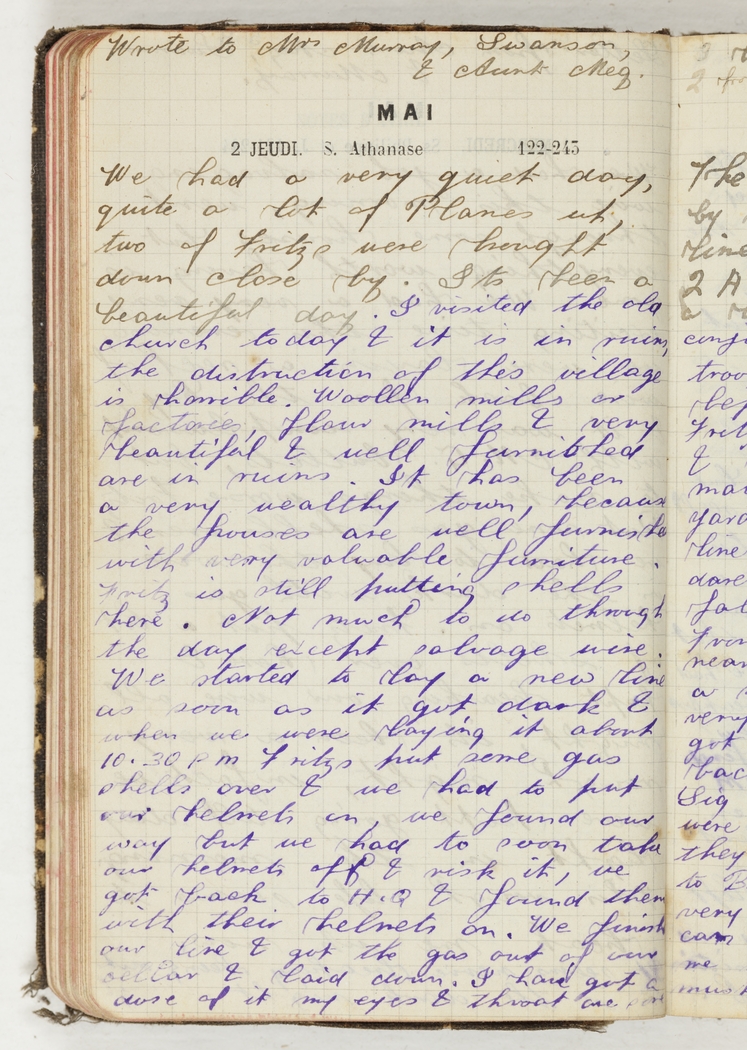 Wrote to Mrs Murray, Swanson,
& Aunt Meg.
MAI
2 JEUDI. S. Athanase 122-243
We had a very quiet day,
quite a lot of Planes up,
two of Fritzs were brought
down close by. Its been a
beautiful day. I visited the old
church today & it is in ruins,
the distruction of this village
is horrible. Woollen mills or
factories, flour mills & very
beautiful & well furnished
are in ruins. It has been
a very wealthy town, because
the houses are well furnishe
with very valuable furniture.
Fritz is still putting shells
here. Not much to do through
the day except salvage wire.
We started to lay a new line
as soon as it got dark &
when we were laying it about
10.30 pm Fritzs put some gas
shells over & we had to put
our helmets on, we found our
way but we had to soon take
our helmets off & risk it, we
got back to H.Q & found them
with their helmets on. We finish
our line & got the gas out of our
cellar & laid down. I have got a
dose of it my eyes & throat are sore
3
2
The
by
line
2 A
a
conj
troo
bef
Frit
&
mar
yard
line
dare
fal
Fron
near
a
very
got
bac
Sig
were
they
to B
very
cam
me
must